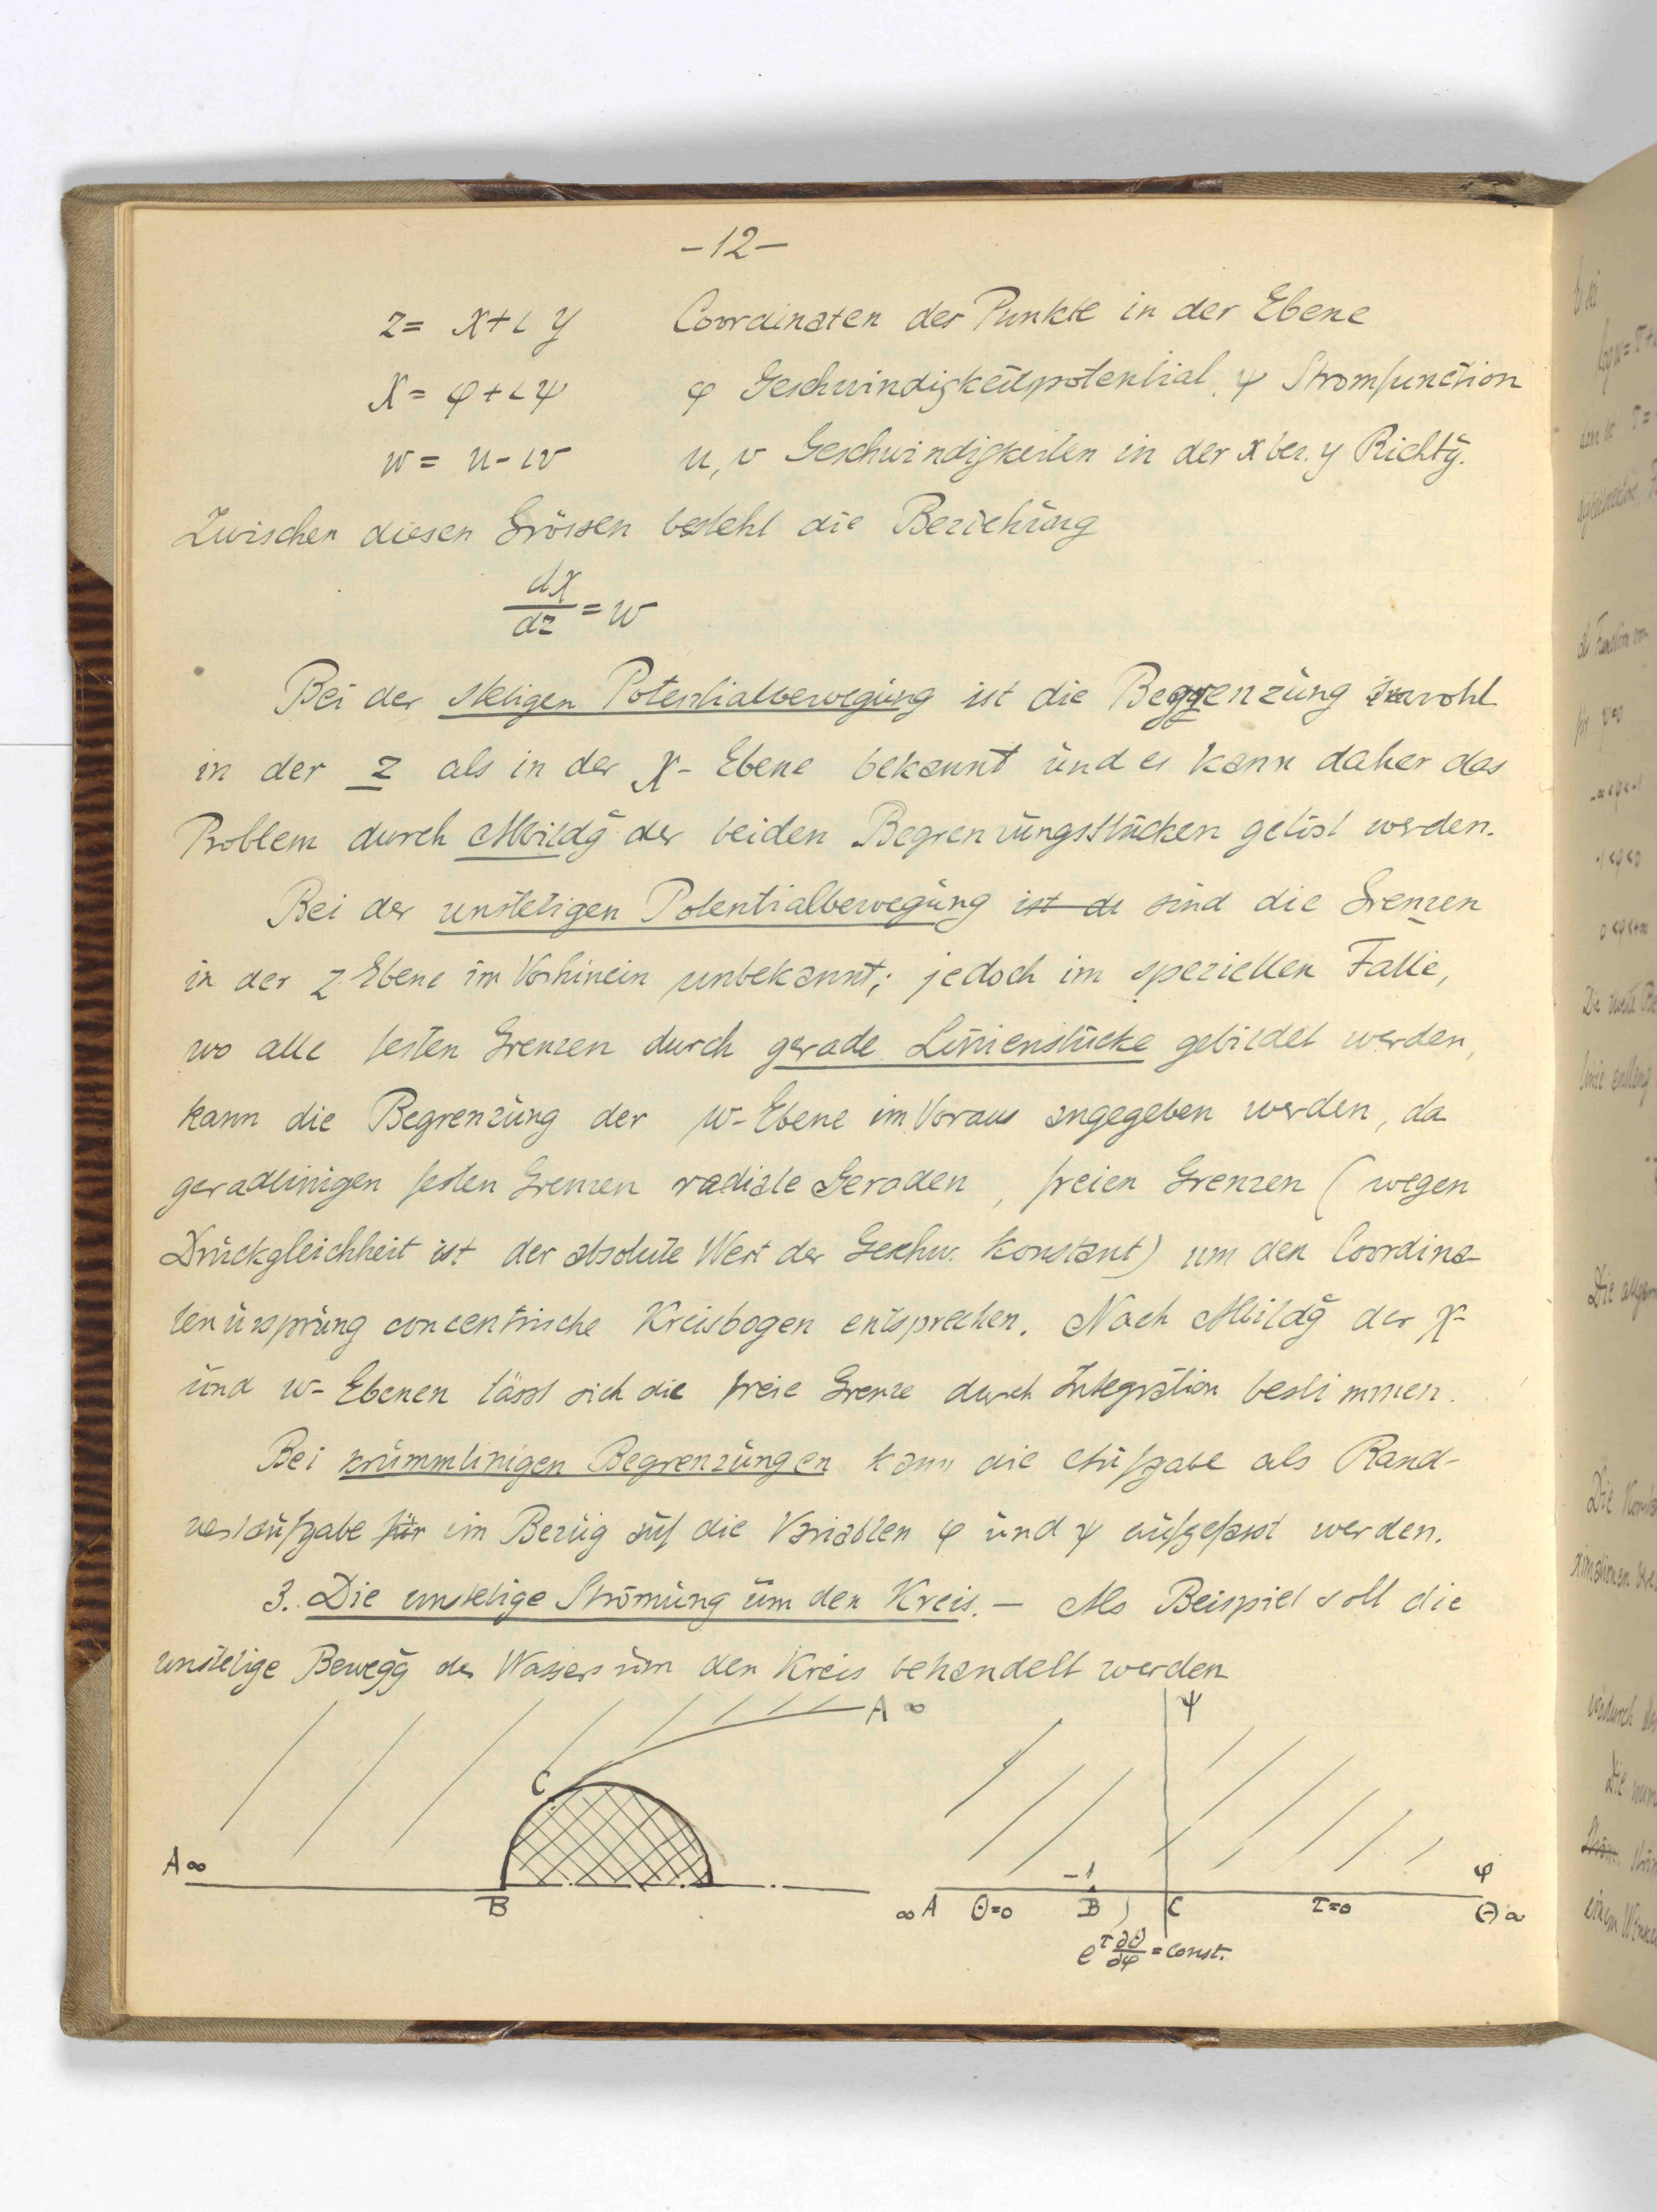 -12-
z = x + i y Coordinaten der Punkte in der Ebene
χ = φ + i ψ φ Geschwindigkeitspotential, ψ Stromfunction
w = u - iv u, v Geschwindigkeiten in der x bez. y Richtg.
Zwischen diesen Grössen besteht die Beziehung
dχ/dz = w
Bei der stetigen Potentialbewegung ist die Begrenzung sowohl
in der z als in der χ- Ebene bekannt und es kann daher das
Problem durch Abbildg der beiden Begrenzungsstücken gelöst werden.
Bei der unstetigen Potentialbewegung ist de sind die Grenzen
in der z Ebene im Vorhinein unbekannt; jedoch im speziellen Falle,
wo alle festen Grenzen durch gerade Linienstücke gebildet werden,
kann die Begrenzung der w-Ebene im Voraus angegeben werden, da
geradlinigen festen Grenzen radiale Geraden, freien Grenzen (wegen
Druckgleichheit ist der absolute Wert der Geschw. konstant) um den Coordina-
tenursprung concentrische Kreisbogen entsprechen. Nach Abbildg der χ-
und w- Ebenen lässt sich die freie Grenze durch Integration bestimmen.
Bei krummlinigen Begrenzungen kann die Aufgabe als Rand-
wertaufgabe für im Bezug auf die Variablen φ und ψ aufgefasst werden.
3. Die unstetige Strömung um den Kreis. — Als Beispiel soll die
unstetige Bewegg des Wassers um den Kreis behandelt werden
A ∞ ψ
C
A∞ -1 φ
B ∞ A Θ=0 B C τ=0 Θ ∞
e^τ ∂Θ/∂φ = const.